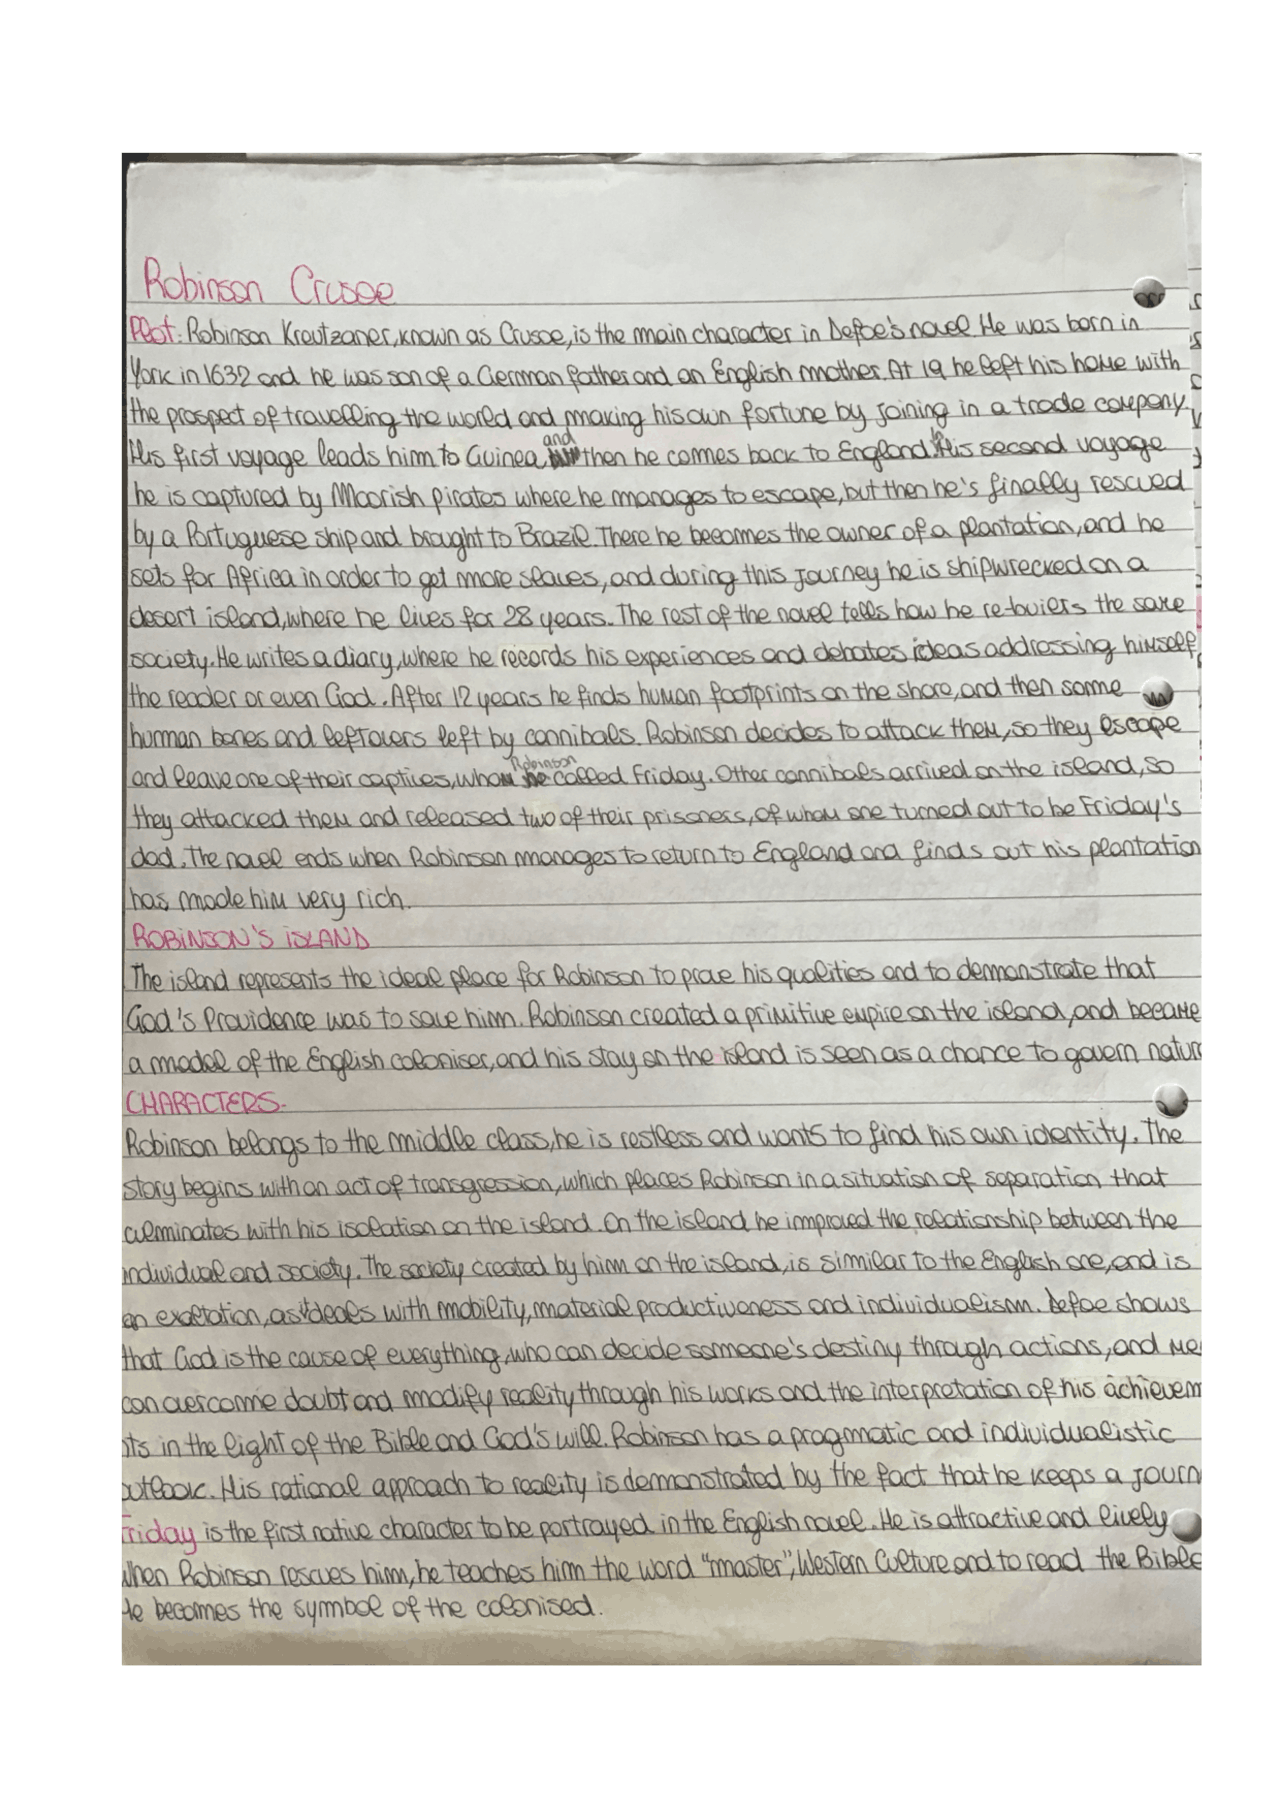 Robinson Crusoe
Plot: Robinson Kreutzaner, known as Crusoe, is the main character in Defoe's novel. He was born in
York in 1632 and he was son of a German father and an English mother. At 19 he left his home with
the prospect of travelling the world and making his own fortune by joining in a trade company.
His first voyage leads him to Guinea, and then he comes back to England. His second voyage
he is captured by Moorish pirates where he manages to escape, but then he's finally rescued
by a Portuguese ship and brought to Brazil. There he becomes the owner of a plantation, and he
sets for Africa in order to get more slaves, and during this journey he is shipwrecked on a
desert island, where he lives for 28 years. The rest of the novel tells how he the same
society. He writes a diary, where he records his experiences and debates ideas addressing himself
the reader or even God. After 12 years he finds human footprints on the shore, and then some
human bones and leftovers left by cannibals. Robinson decides to attack them, so they escape
and leave one of their captives, whom Robinson called Friday. Other cannibals arrived on the island, so
they attacked them and released two of their prisoners, of whom one turned out to be Friday's
dad. The novel ends when Robinson manages to return to England and finds out his plantation
has made him very rich.
ROBINSON'S ISLAND
The island represents the ideal place for Robinson to prove his qualities and to demonstrate that
God's Providence was to save him. Robinson created a primitive empire on the island, and became
a model of the English coloniser, and his stay on the island is seen as a chance to govern natur
CHARACTERS.
Robinson belongs to the middle class, he is restless and wants to find his own identity. The
story begins with an act of transgression, which places Robinson in a situation of separation that
culminates with his isolation on the island. On the island he improved the relationship between the
individual and society. The society created by him on the island, is similar to the English one, and is
an exaltation, as it deals with mobility, material productiveness and individualism. Defoe shows
that God is the cause of everything, who can decide someone's destiny through actions, and
can overcome doubt and modify reality through his works and the interpretation of his achievem
nts in the light of the Bible and God's will. Robinson has a pragmatic and individualistic
outlook. His rational approach to reality is demonstrated by the fact that he keeps a journ
Friday is the first native character to be portrayed in the English novel. He is attractive and lively
When Robinson rescues him, he teaches him the word "master", Western Culture and to read the Bible
He becomes the symbol of the colonised.